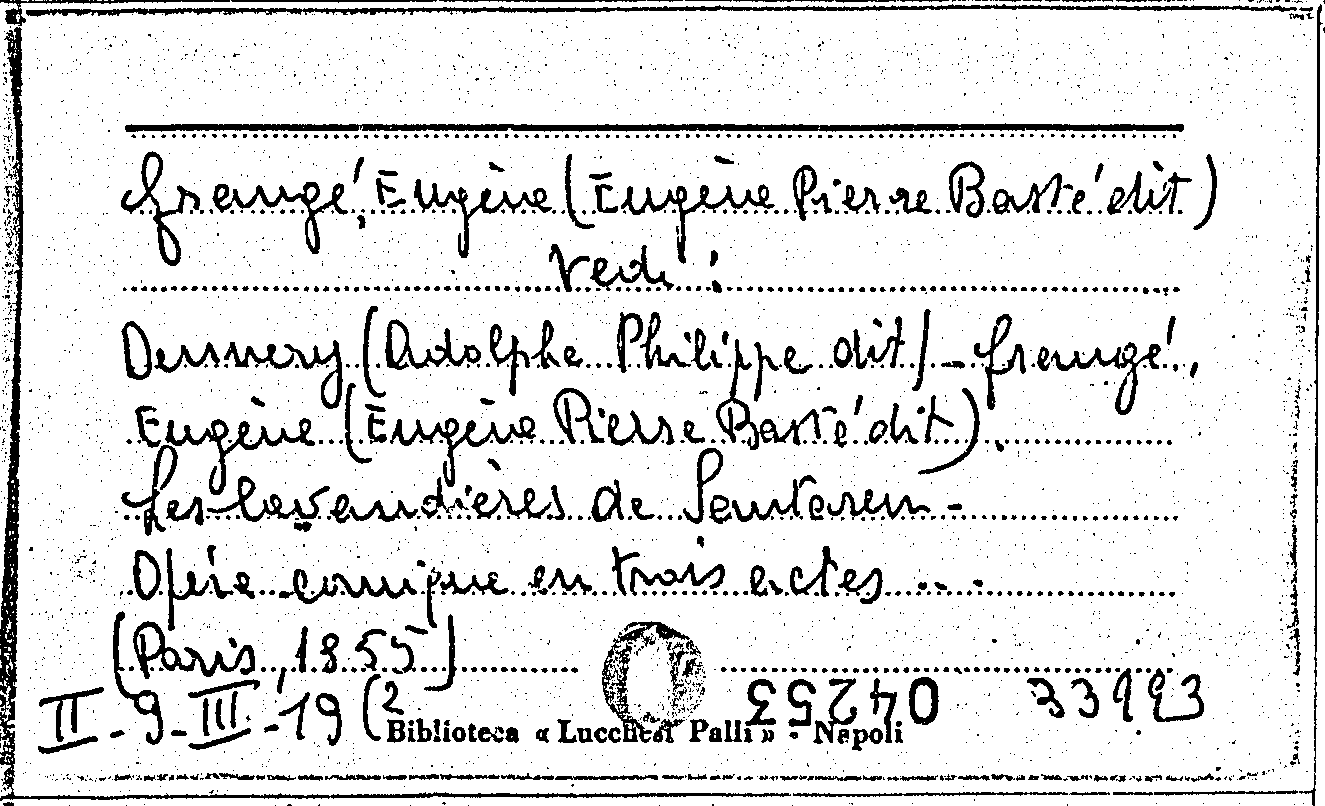 Grangé, Eugène (Eugène Pierre Basté dit)
Vedi :
Dennery (Adolphe Philippe dit) - Grangé,
Eugène (Eugène Pierre Basté dit).
Les lavandières de Santarem -
Opéra comique en trois actes ...
[Paris, 1855]
II - 9 - III - 19 (2
04253 33993
Biblioteca « Lucchesi Palli » - Napoli